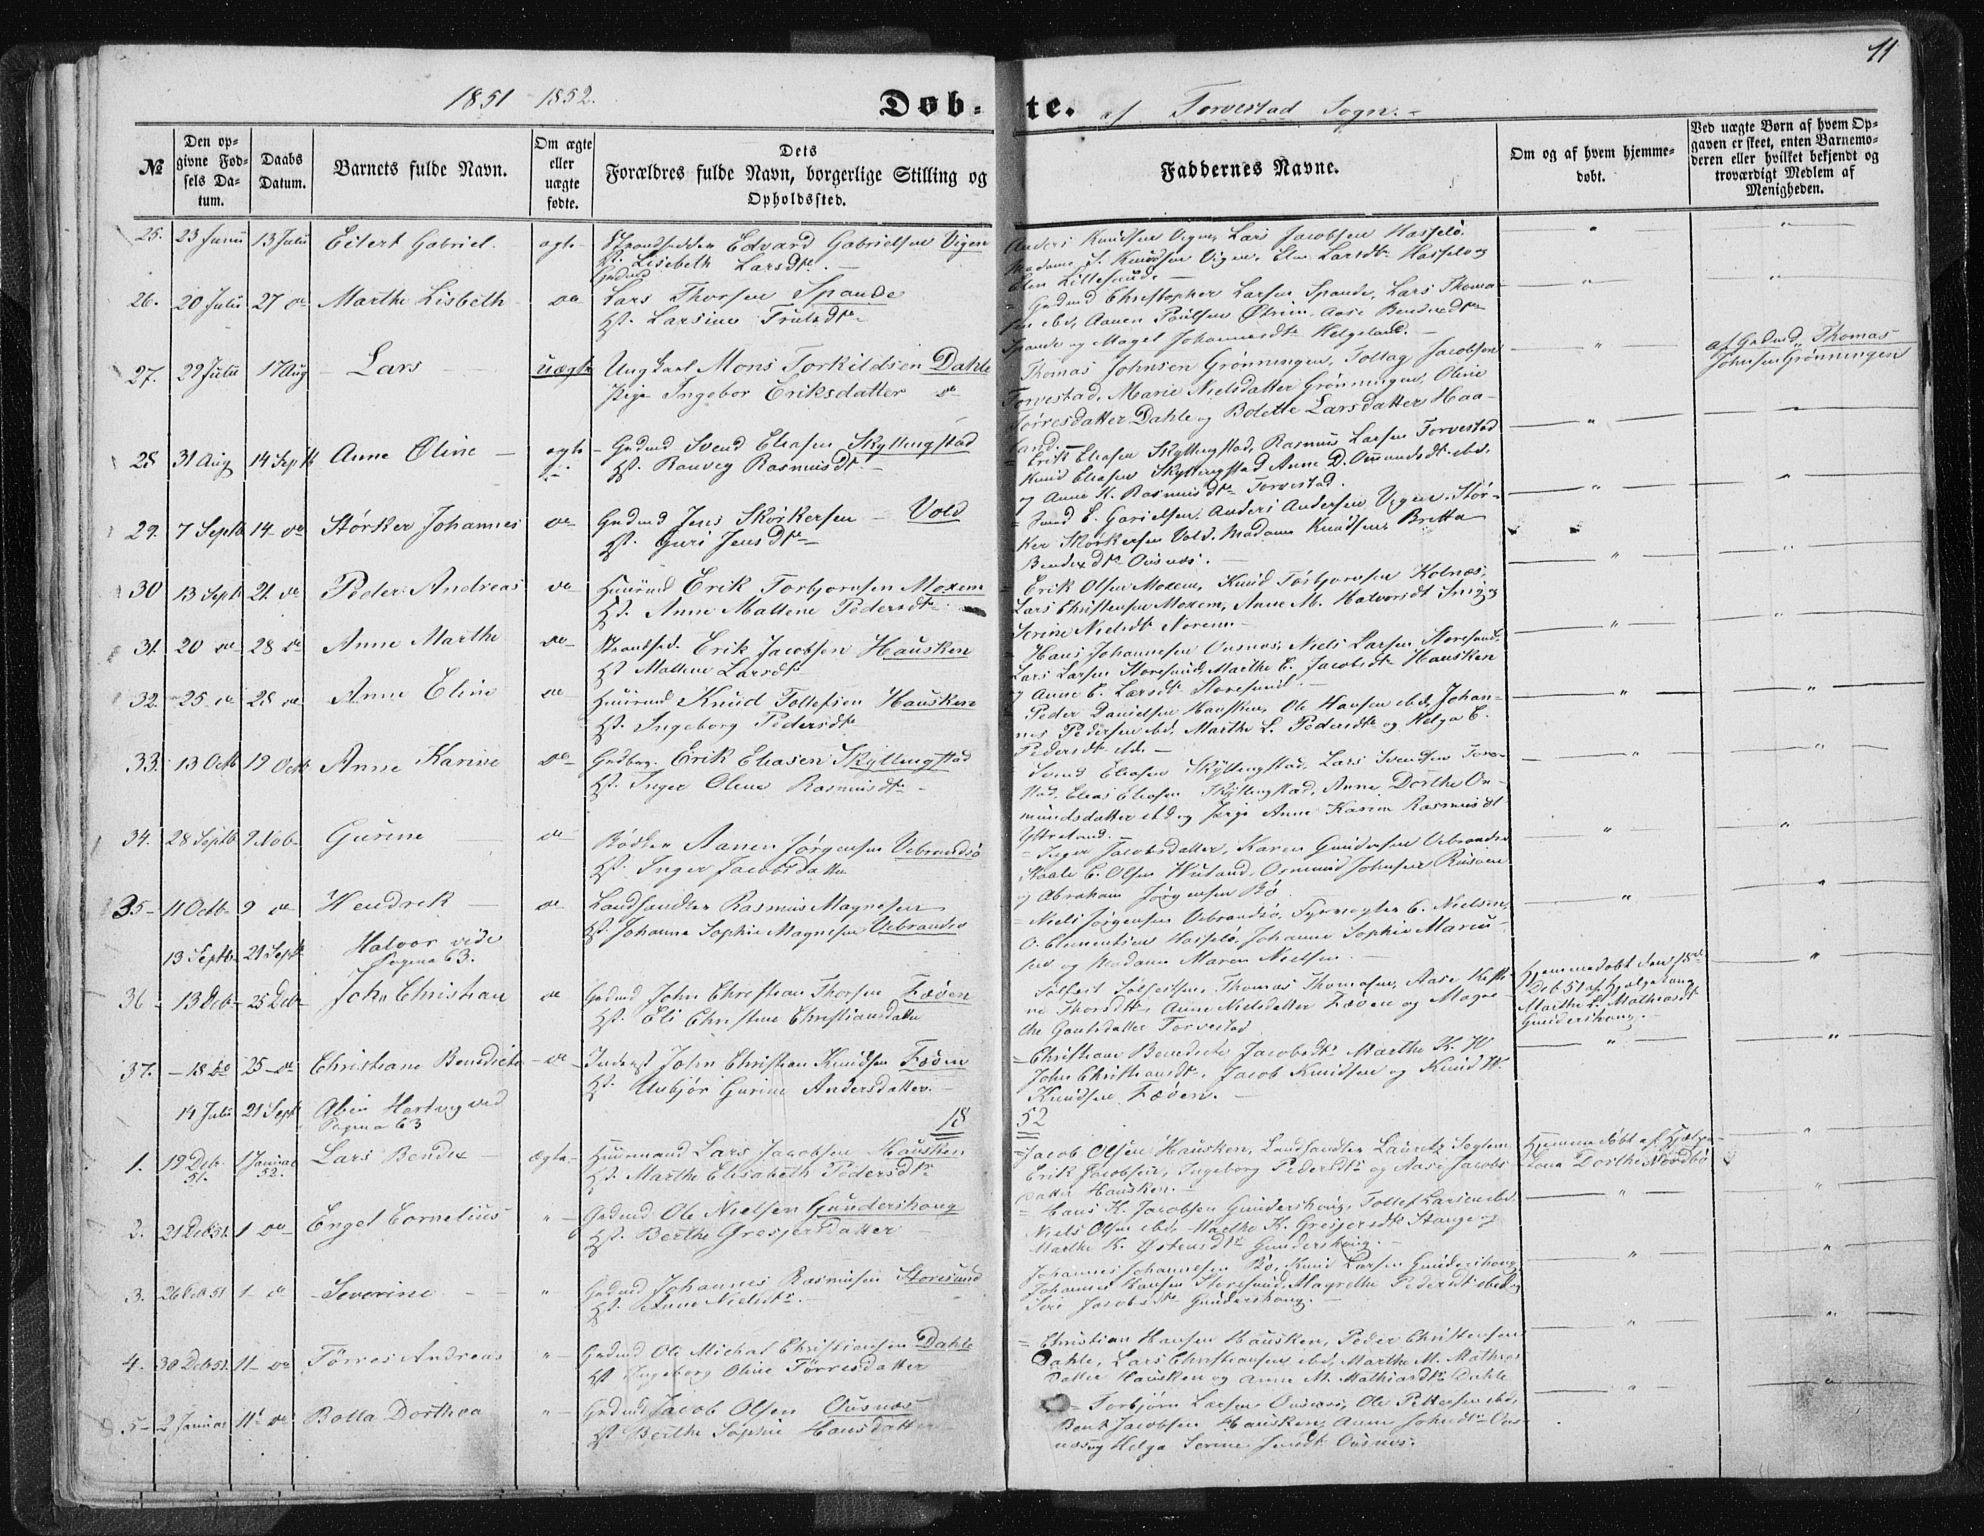 11
1851 1852.
Døb-te. af Torvestad Sogn.
№
Den op-
givne Fød-
sels Da-
tum.
Daabs
Datum.
Barnets fulde Navn.
Om ægte
eller
uægte
fødte.
Dets
Forældres fulde Navn, borgerlige Stilling og
Opholdssted.
Faddernes Navne.
Om og af hvem hjemme-
døbt.
Ved uægte Børn af hvem Op-
gaven er skeet, enten Barnemo-
deren eller hvilket bekjendt og
troværdigt Medlem af
Menigheden.
25. 23 Junii 13 Julii Eilert Gabriel ægte Strandsidder Edvard Gabrielsen Vigen
H. Lisebeth Larsdtr
Anders Knudsen Vigen, Lars Jacobsen Hasselø
Madame S. Knudsen Vigen, Elen Larsdtr Hasselø og
Elen Lillesund
26. 20 Julii 27 do Marthe Lisbeth do Grdmd
Lars Thorsen Spande
H. Larsine Trulsdtr
Grdmd Christopher Larsen Spande, Lars Thoma-
sen ibd, Aanen Poulsen Østrem, Aase Bendixdtr
Spande og Magel Johannesdtr Helgeland.
27. 29 Julii 17 Aug Lars uægte Ungkarl Mons Torkildsen Dahle
Pige Ingebor Eriksdatter do
Thomas Johnsen Grønningen, Tollag Jacobsen
Torvestad, Marie Nielsdatter Grønningen, Oline
Tørresdatter Dahle og Bolette Larsdatter Haa-
land.
af Grdmd Thomas
Johnsen Grønningen
28 31 Aug 14 Septb Anne Oline ægte Grdmd Svend Eliasen Skyllingstad
H. Ranveg Rasmusdtr
Erik Eliasen Skyllingstad, Rasmus Larsen Torvestad
Knud Eliasen Skyllingstad Anne D. Omundsdtr ibd,
og Anne K. Rasmusdtr Torvestad.
29. 7 Septb 14 do Størker Johannes do Grdmd Jens Størkersen Vold
H. Guri Jensdtr
Svend E. Garielsen, Anders Andersen Vigen, Stør-
ker Størkersen Vold, Madame Knudsen, Britta
Bendixdtr Ousnæs.
30 13 Septb 21 do Peder Andreas do Huusmd Erik Torbjornsen Moxem
H. Anne Maltene Pedersdtr
Erik Olsen Moxem, Knud Torbjornsen Kolnæs,
Lars Christensen Moxem, Anne M. Halvorsdt Snig og
Serine Nielsdt Norem
31. 20 do 28 do Anne Marthe do Strandsid. Erik Jacobsen Hausken
H. Maltene Larsdtr
Hans Johannesen Ousnæs, Niels Larsen Storesund,
Lars Larsen Storesund, Marthe E. Jacobsdtr Hausken
og Anne E. Larsdt Storesund.
32. 25 do 28 do Anne Eline do Huusmd Knud Tollefsen Hausken
H. Ingeborg Pedersdtr
Peder Danielsen Hausken, Ole Hansen ibd, Johan-
nes Pedersen ibd, Marthe L. Pedersdtr og Helga E.
Pedersdtr ibd.
33. 13 Octb 19 Octb Anne Karine do Grdbrg. Erik Eliasen Skyllingstad
H. Inger Olene Rasmusdtr
Svend Eliasen Skyllingstad, Lars Svendsen Torve-
stad, Elias Eliasen Skyllingstad, Anne Dorthe Om-
mundsdatter ibd og Pige Anne Karine Rasmusdt
Ytreland.
34. 28 Septb 9 Novb Gurine do Bødker Aanen Jørgensen Vebrandsø
H. Inger Jacobsdatter
Inger Jacobsdatter, Karen Gundersen Vebrandsø
Staale E. Olsen Hviland, Osmund Johnsen
og Abraham Jørgensen Bø
35 11 Octb 9 do Hendrek do Landhandler Rasmus Magnesen
H. Johanna Sophie Magnesen Vebrandsø
Niels Jørgensen Vebrandsø, C. Nielsen,
O. Clementsen Hasselø, Johanne Sophie Marie
og Madame Maren Nielsen.
13 Septb 21 Septb Halvor vide
Pagina 63.
36 13 Decb 25 Decb John Christian do Grdmd John Christian Thorsen Fæøen
H. Eli Christine Christiansdatter
Solfest Solfestsen, Thomas Thomasen, Aase Kirsti-
ne Thorsdtr, Anne Nielsdatter Fæøen og Magre-
the Gautsdatter Torvestad
Hjemmedøbt den 18de
Decb 51 af Hjelpelona
Marthe L. Mathiasdt
Gunderskoug.
37. 18 do 25 do Christiane Bendicte do Inderst John Christian Knudsen Fæøen
H. Unbjør Gurine Andersdatter
Christiane Benedicte Jacobsdtr Marthe K. W
John Christiansdtr, Jacob Knudsen og Knud W.
Knudsen Fæøen.
14 Julii 21 Septb Abia Hartvig ved
Pagina 63
18 52
1. 19 Decb
51. 1 Januar
52. Lars Bendix ægte Huusmand Lars Jacobsen Hausken
H. Marthe Elisabeth Pedersdtr
Jacob Olsen Hausken, Landhandler Lauritz Seglem,
Erik Jacobsen, Ingeborg Pedersdtr og Aase Jacobs-
datter Hausken.
Hjemmedøbt af Hjelpe-
kona Dorthe Nordbø
2. 21 Decb 51. 1 do Engel Cornelius " Grdmd Ole Nielsen Gunderskoug
H. Berthe Gresjersdatter
Hans K. Jacobsen Gunderskoug, Tollef Larsen ibd.
Niels Olsen ibd, Marthe K. Gresjersdtr Stange og
Marthe K. Østensdtr Gunderskoug.
3. 26 Decb 51 1 do Severine " Grdmd Johannes Rasmusen Storesund
H. Anne Nielsdtr
Johannes Johannesen Bø, Knud Larsen Gunderskoug
Johannes Hansen Storesund, Magrethe Pedersdt ibd og
Siri Jacobsdtr Gunderskoug.
4. 30 Decb 51. 11 do Tørres Andreas " Grdmd Ole Michal Christiansen Dahle
H. Ingeborg Oline Tørresdatter
Christian Hansen Hausken, Peder Christensen
Dahle, Lars Christiansen ibd, Marthe M. Mathias-
datter Hausken og Anne M. Mathiasdtr Dahle
5 2 Januar 11 do Bolla Dorthea " Grdmd Jacob Olsen Ousnæs
H. Berthe Sophie Hansdatter
Torbjørn Larsen Ousnæs, Ole Pettersen ibd,
Bent Jacobsen Hausken, Anne Johnsdtr Ous-
næs og Helga Serine Jensdt Ousnæs.